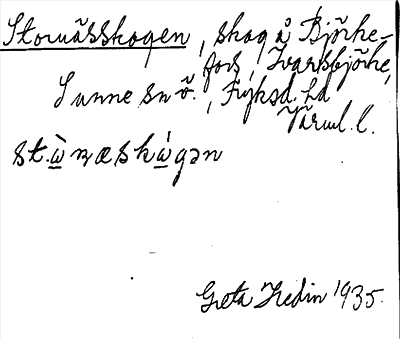 Stornässkogen, skog å Björke-
fors, Ivarsbjörke,
Sunne sn ö., Fryksd. hd
Värml. l.
Greta Hedin 1935.